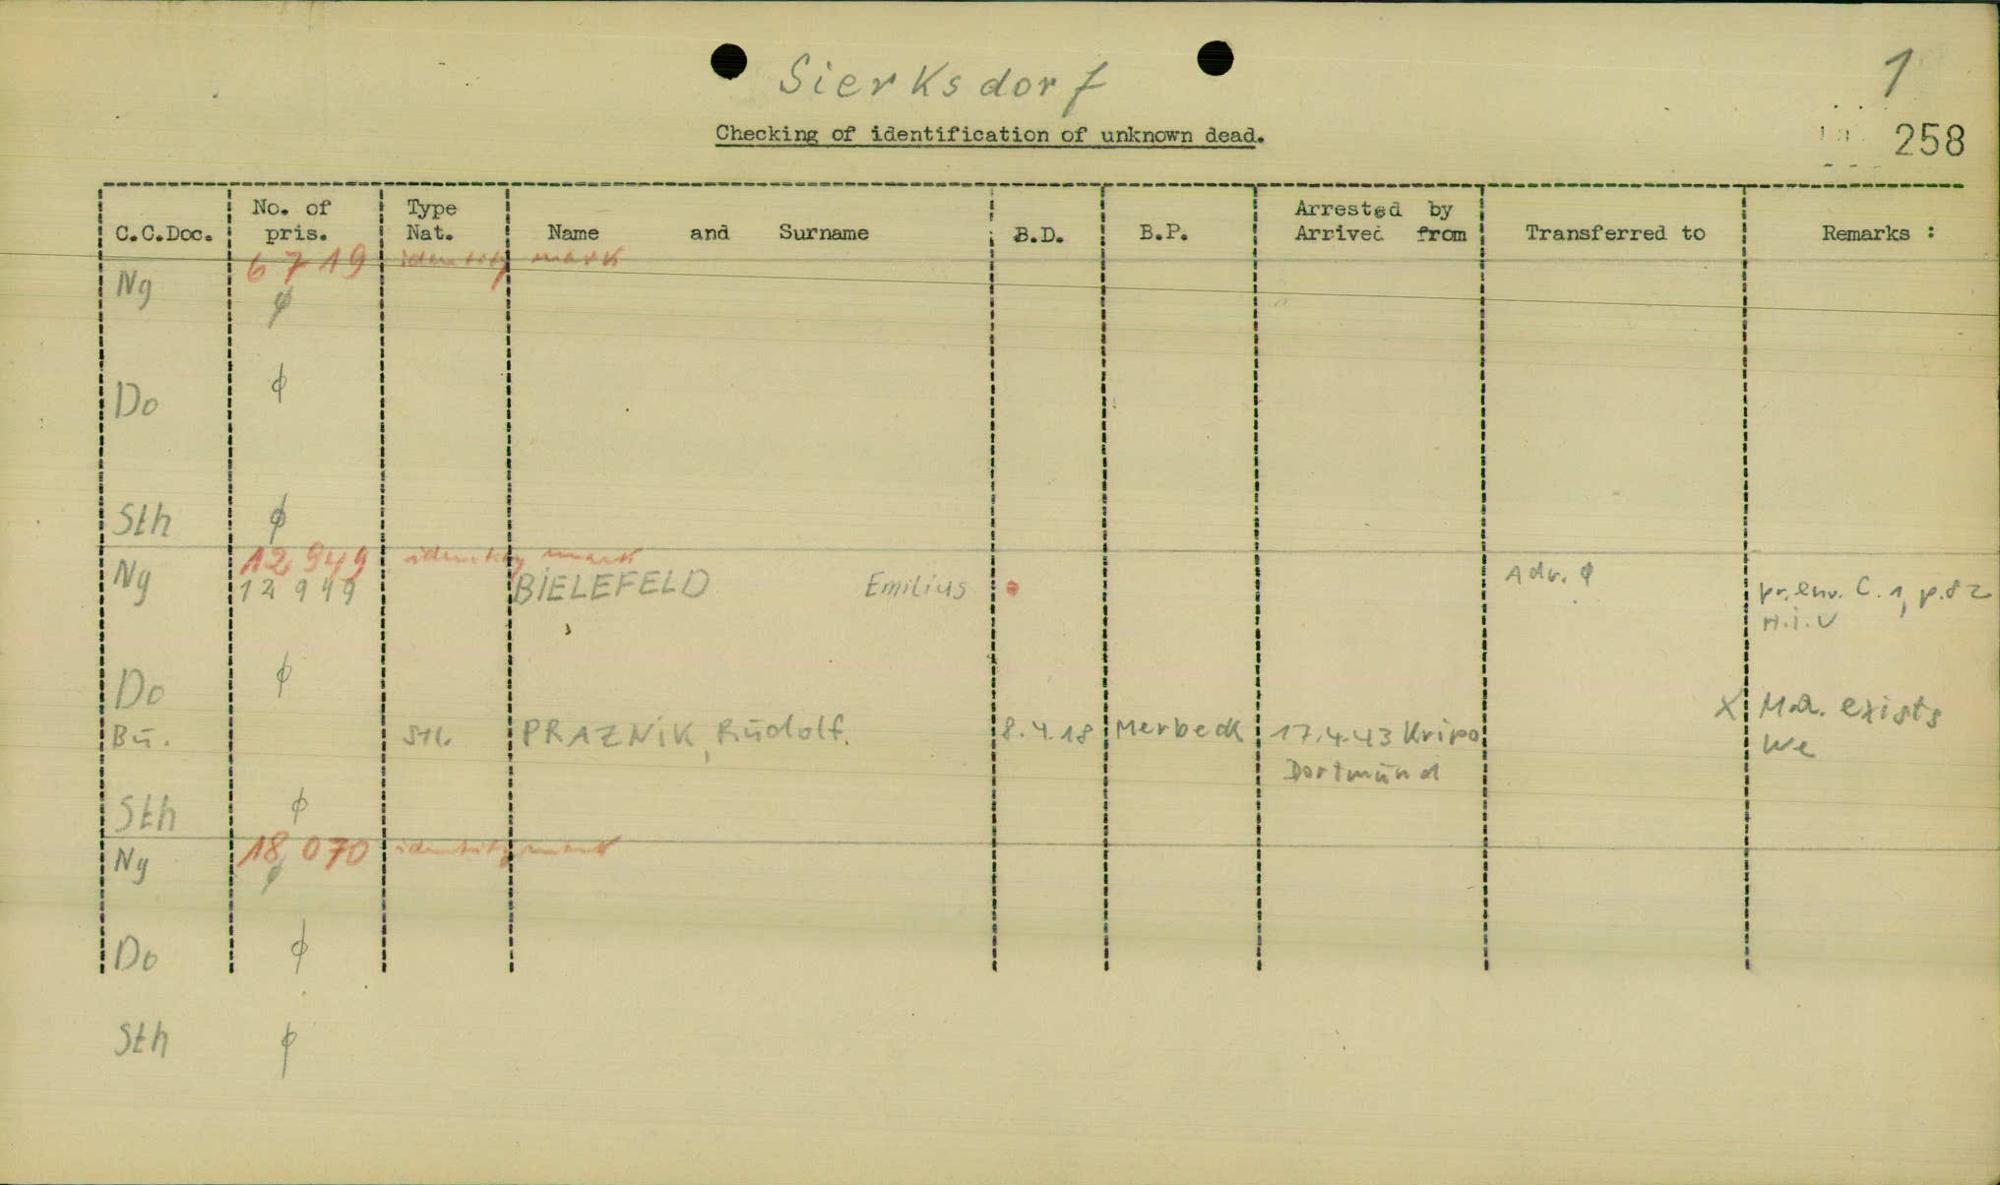 Sierksdorf
1
Checking of identification of unknown dead.
258
C.C.Doc. No. of pris. Type Nat. Name and Surname B.D. B.P. Arrested by Arrived from Transferred to Remarks :
6719 identity mark
Ng ϕ
Do ϕ
Sth ϕ
12 949 identity mark
Ng 12 949 BIELEFELD Emilius Adr. ϕ pr. env. C. 1, p. 82
H.i.V
Do ϕ
X M.a. exists
Bü. Sth. PRAZNIK, Rudolf. 8.4.18 Merbeck 17.4.43 Kripo We
Dortmund
Sth ϕ
18,070 identity mark
Ng ϕ
Do ϕ
Sth ϕ